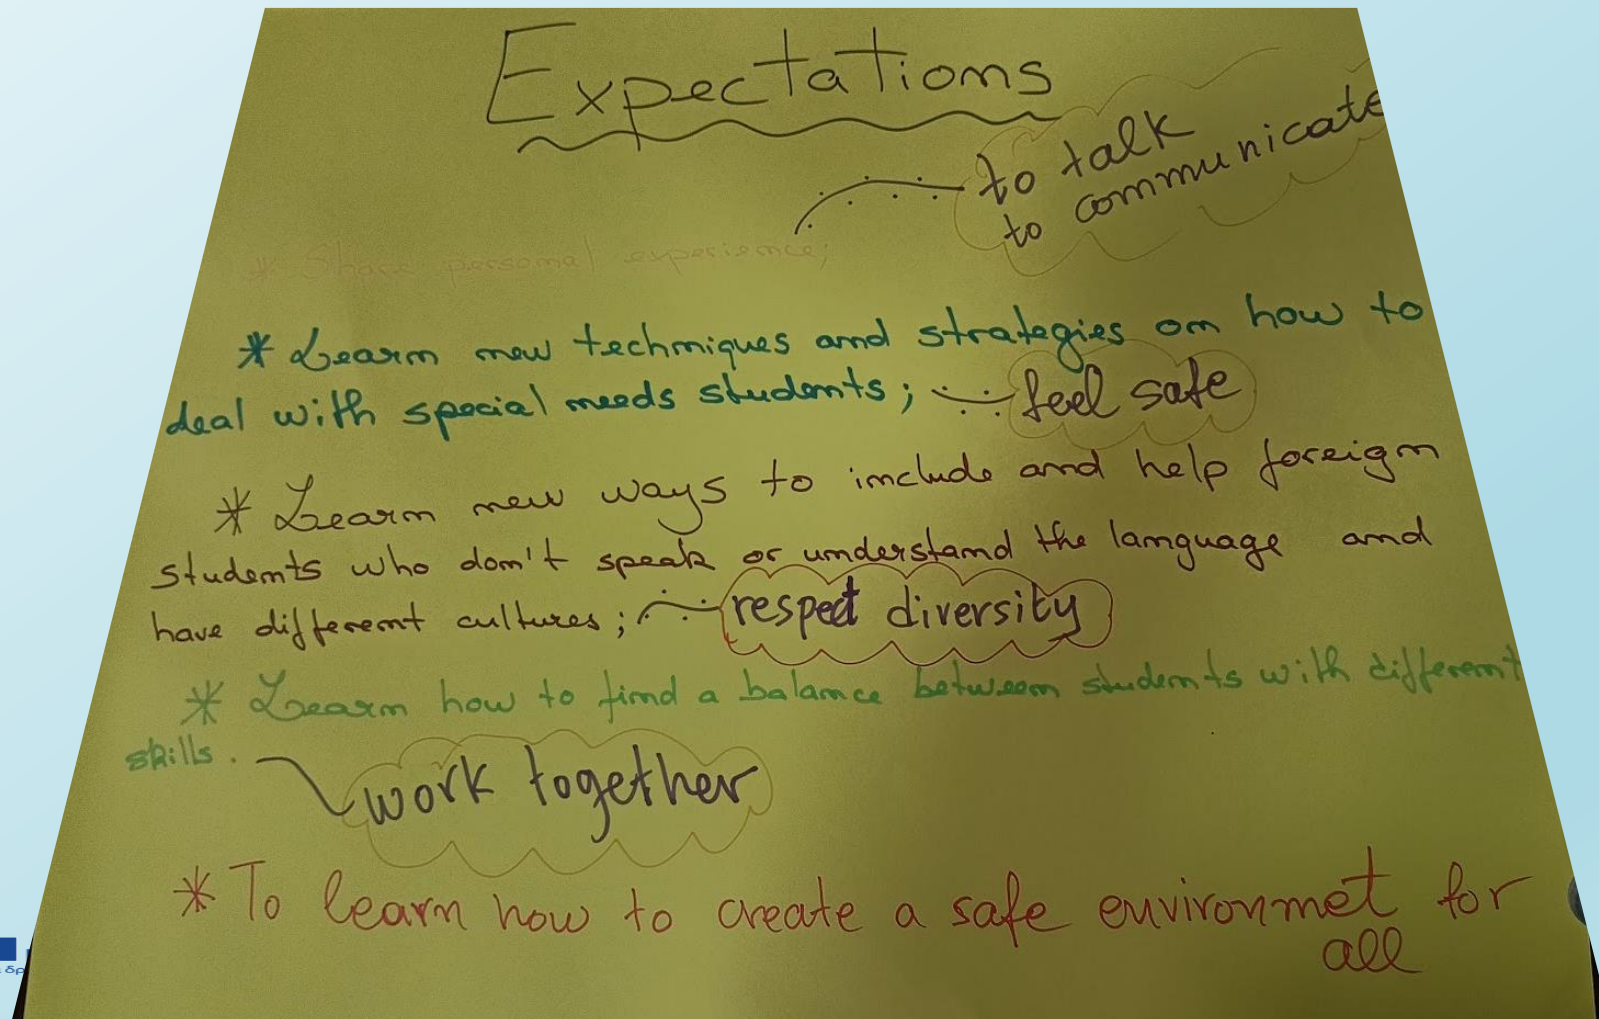 Expectations
to talk
to communicate
* Share personal experience;
* Learn new techniques and strategies on how to
deal with special needs students;
feel safe
* Learn new ways to include and help foreign
students who don't speak or understand the language and
have different cultures;
respect diversity
* Learn how to find a balance between students with different
skills.
work together
* To learn how to create a safe environmet for
all